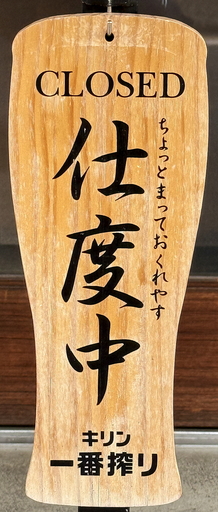 CLOSED
仕度中
ちょっとまっておくれやす
キリン
一番搾り